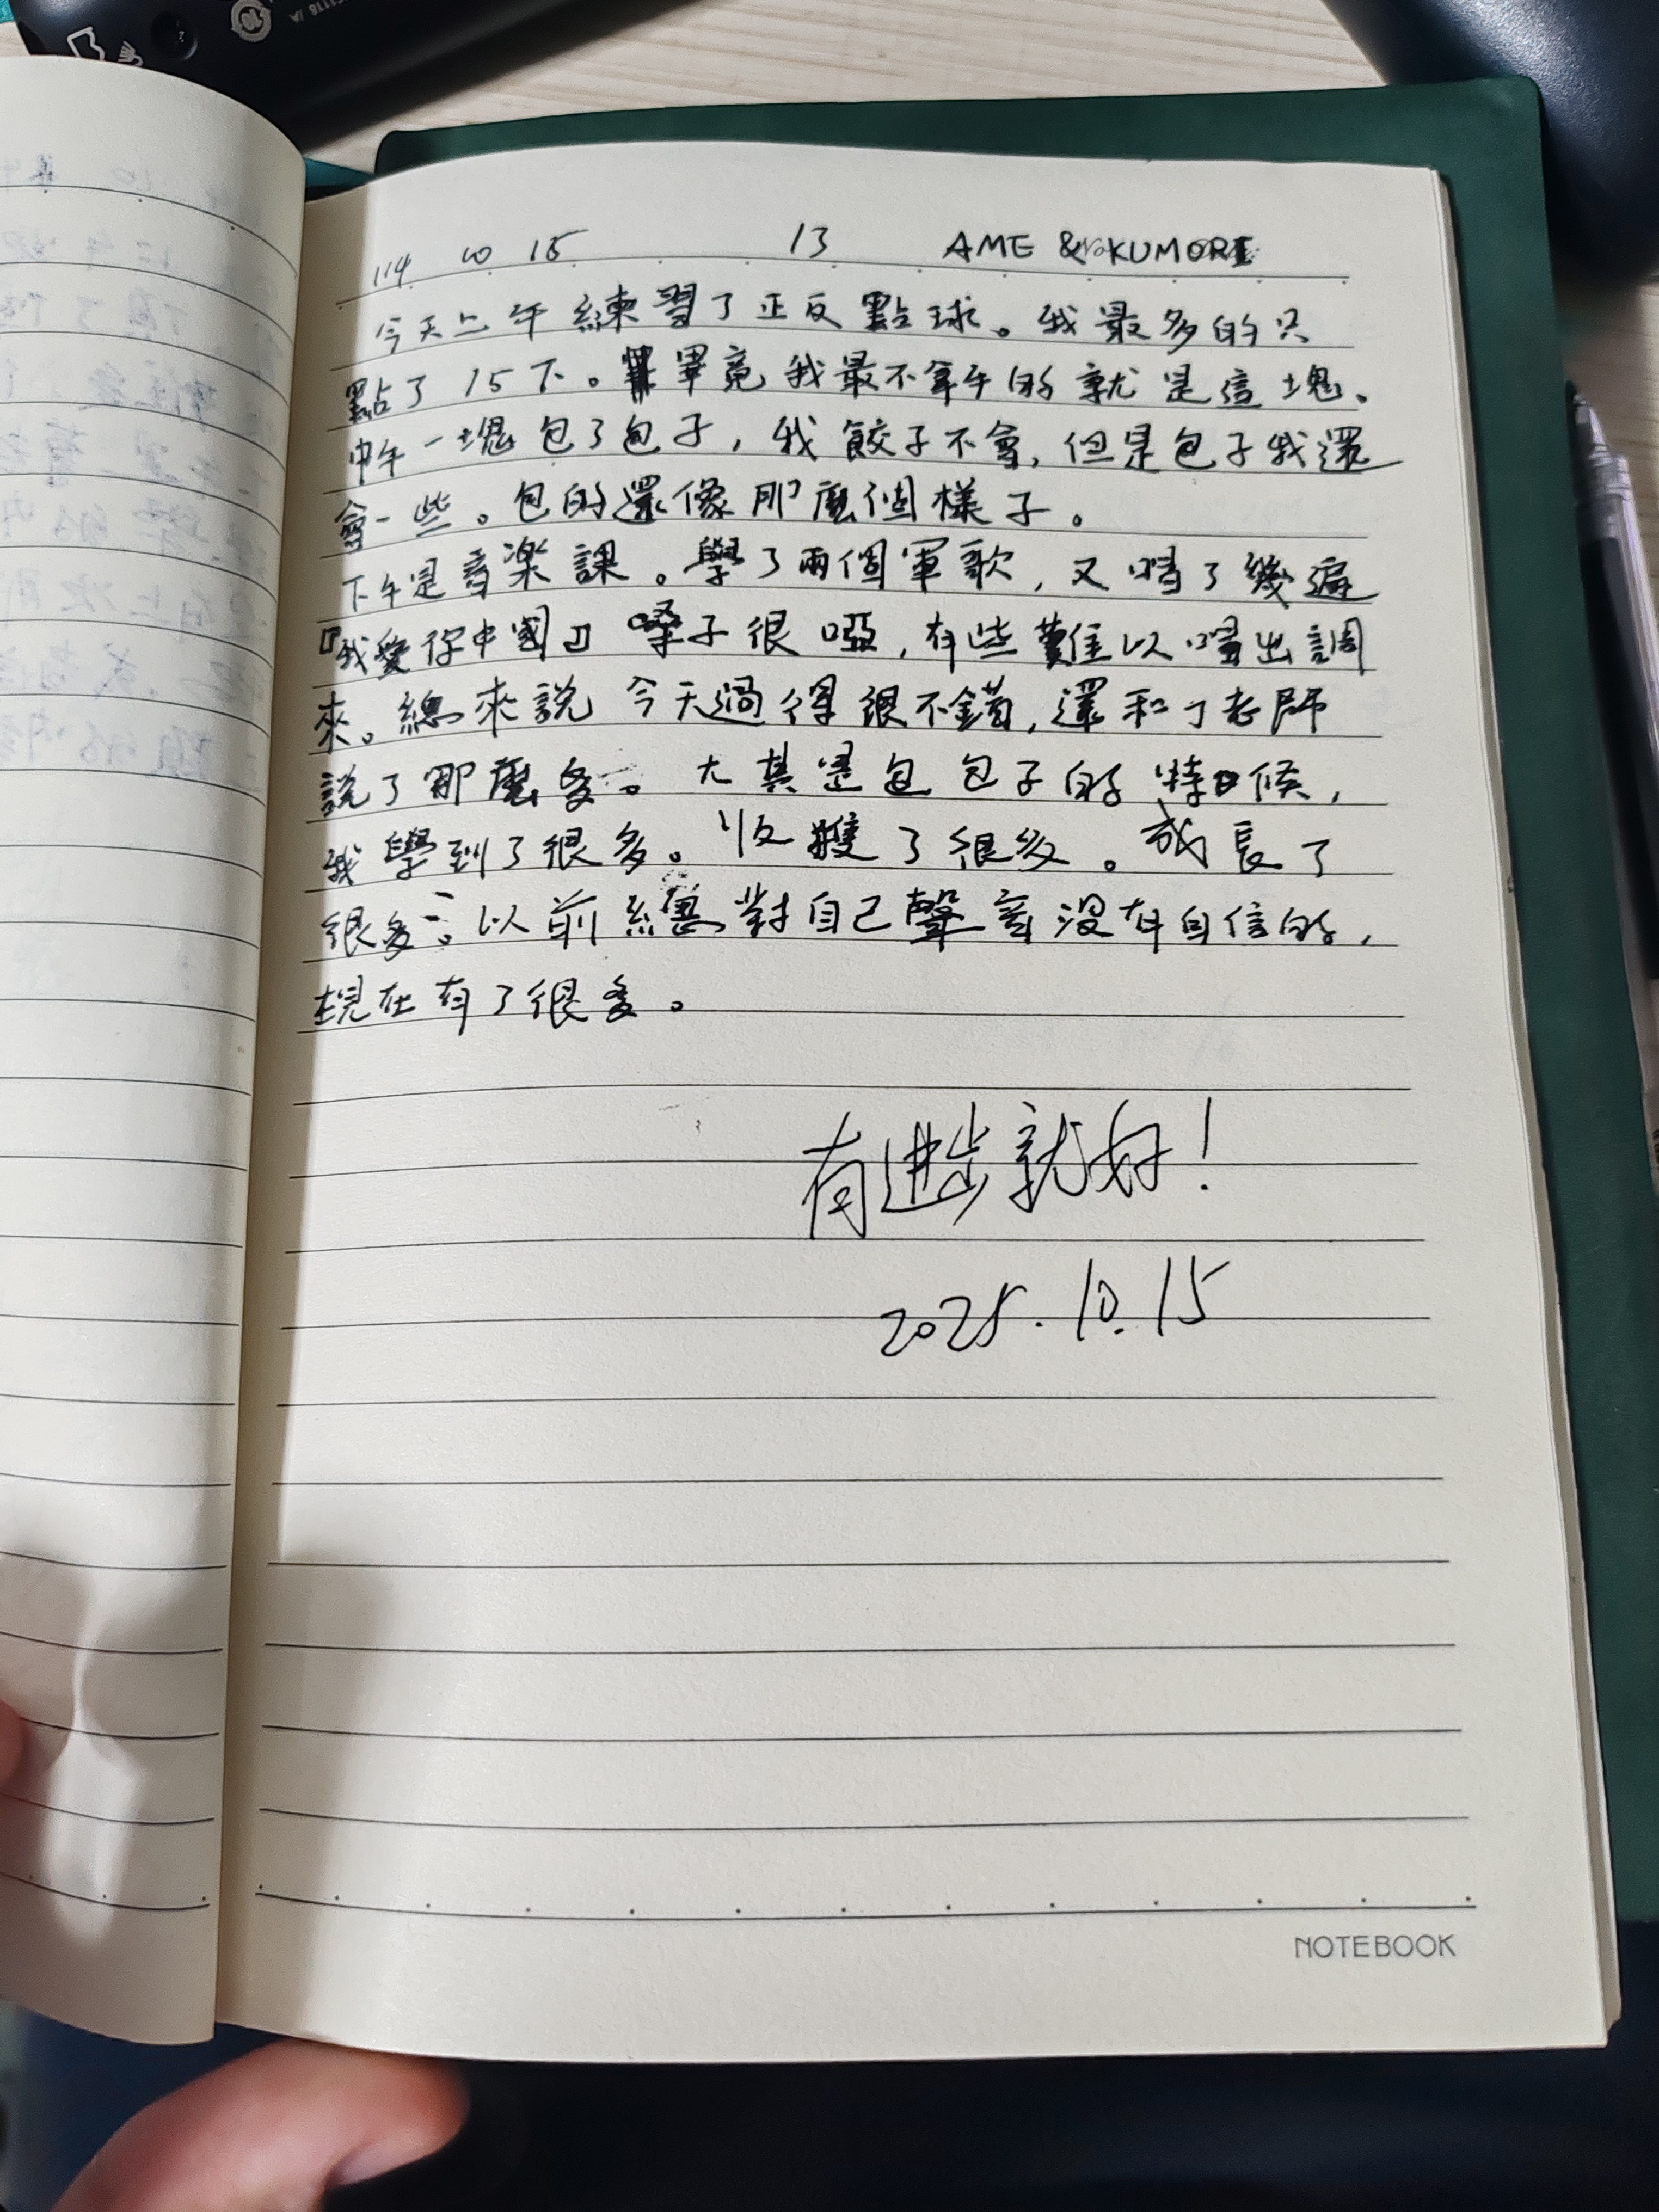 114 10 15 13 AME & KUMORI
今天上午練習了正反點球。我最多的只
點了15下。畢竟我最不拿手的就是這塊。
中午一塊包了包子，我餃子不會，但是包子我還
會一些。包的還像那麼個樣子。
下午是音楽課。學了兩個軍歌，又唱了幾遍
『我愛你中國』嗓子很啞，有些難以唱出調
來。總來說今天過得很不錯，還和丁老師
說了那麼多。尤其是包包子的時候，
我學到了很多。收穫了很多。成長了
很多。以前總對自己聲音沒有自信的，
現在有了很多。
有進步就好！
2025.10.15
NOTEBOOK